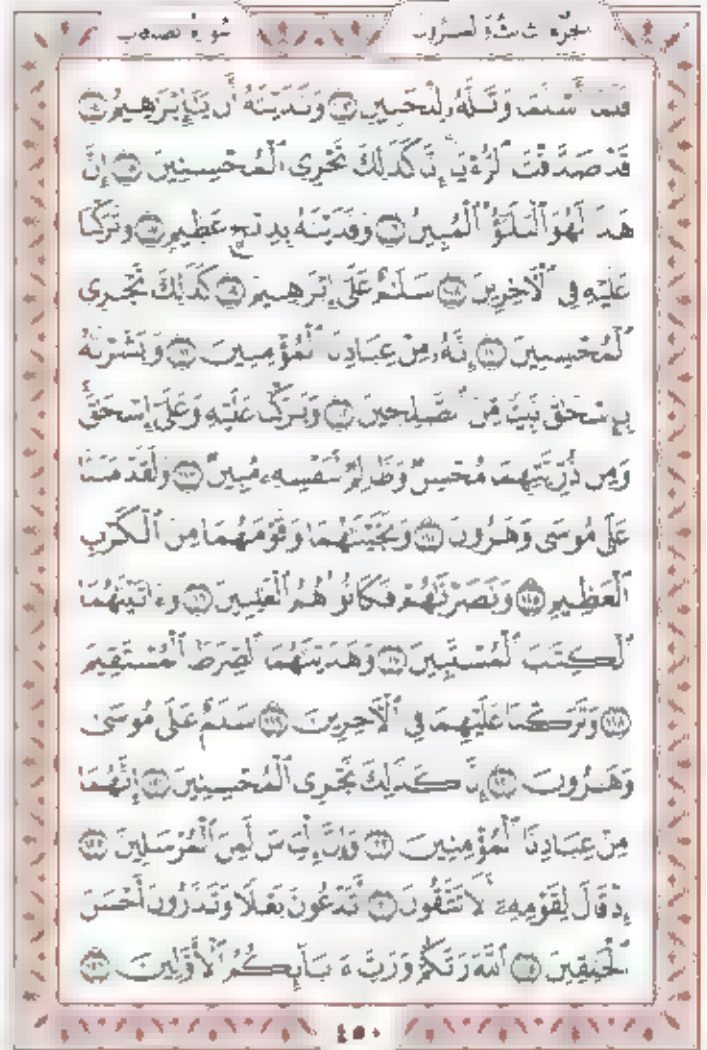 الجزء الثالث والعشرون سورة الصافات
فَلَمَّا أَسْلَمَا وَتَلَّهُ لِلْجَبِينِ ١٠٣ وَنَٰدَيْنَٰهُ أَن يَٰٓإِبْرَٰهِيمُ ١٠٤
قَدْ صَدَّقْتَ ٱلرُّءْيَآ إِنَّا كَذَٰلِكَ نَجْزِى ٱلْمُحْسِنِينَ ١٠٥ إِنَّ
هَٰذَا لَهُوَ ٱلْبَلَٰٓؤُا۟ ٱلْمُبِينُ ١٠٦ وَفَدَيْنَٰهُ بِذِبْحٍ عَظِيمٍ ١٠٧ وَتَرَكْنَا
عَلَيْهِ فِى ٱلْءَاخِرِينَ ١٠٨ سَلَٰمٌ عَلَىٰٓ إِبْرَٰهِيمَ ١٠٩ كَذَٰلِكَ نَجْزِى
ٱلْمُحْسِنِينَ ١١٠ إِنَّهُۥ مِنْ عِبَادِنَا ٱلْمُؤْمِنِينَ ١١١ وَبَشَّرْنَٰهُ
بِإِسْحَٰقَ نَبِيًّا مِّنَ ٱلصَّٰلِحِينَ ١١٢ وَبَٰرَكْنَا عَلَيْهِ وَعَلَىٰٓ إِسْحَٰقَ
وَمِن ذُرِّيَّتِهِمَا مُحْسِنٌ وَظَالِمٌ لِّنَفْسِهِۦ مُبِينٌ ١١٣ وَلَقَدْ مَنَنَّا
عَلَىٰ مُوسَىٰ وَهَٰرُونَ ١١٤ وَنَجَّيْنَٰهُمَا وَقَوْمَهُمَا مِنَ ٱلْكَرْبِ
ٱلْعَظِيمِ ١١٥ وَنَصَرْنَٰهُمْ فَكَانُوا۟ هُمُ ٱلْغَٰلِبِينَ ١١٦ وَءَاتَيْنَٰهُمَا
ٱلْكِتَٰبَ ٱلْمُسْتَبِينَ ١١٧ وَهَدَيْنَٰهُمَا ٱلصِّرَٰطَ ٱلْمُسْتَقِيمَ
١١٨ وَتَرَكْنَا عَلَيْهِمَا فِى ٱلْءَاخِرِينَ ١١٩ سَلَٰمٌ عَلَىٰ مُوسَىٰ
وَهَٰرُونَ ١٢٠ إِنَّا كَذَٰلِكَ نَجْزِى ٱلْمُحْسِنِينَ ١٢١ إِنَّهُمَا
مِنْ عِبَادِنَا ٱلْمُؤْمِنِينَ ١٢٢ وَإِنَّ إِلْيَاسَ لَمِنَ ٱلْمُرْسَلِينَ ١٢٣
إِذْ قَالَ لِقَوْمِهِۦٓ أَلَا تَتَّقُونَ ١٢٤ أَتَدْعُونَ بَعْلًا وَتَذَرُونَ أَحْسَنَ
ٱلْخَٰلِقِينَ ١٢٥ ٱللَّهَ رَبَّكُمْ وَرَبَّ ءَابَآئِكُمُ ٱلْأَوَّلِينَ ١٢٦
٤٥٠